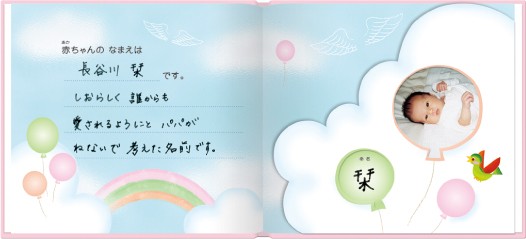 赤ちゃんの なまえは
長谷川 栞 です。
しおらしく 誰からも
愛されるようにと パパが
ねないで 考えた名前です。
命名
栞